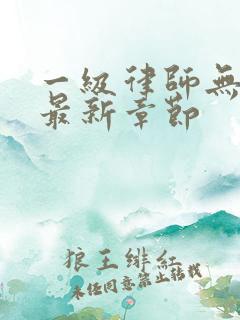 一級律師無
最新章節
狼王緋紅
未经同意禁止转载